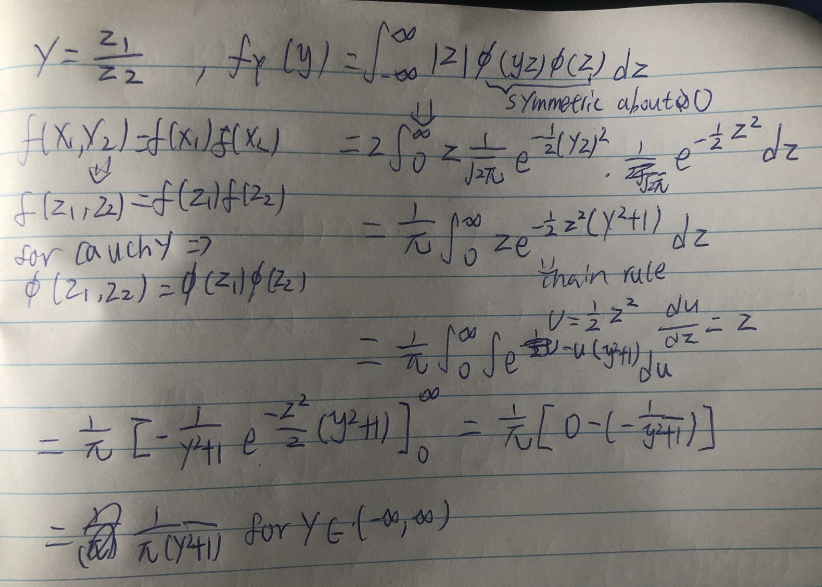 Y = z₁/z₂ , f_Y(y) = ∫_{-∞}^{∞} |z| ϕ(yz) ϕ(z) dz
symmetric about 0
⇓
f(x₁,Y₂) = f(x₁)f(x₂)
⇓
f(z₁,z₂) = f(z₁)f(z₂)
for cauchy ⇒
ϕ(z₁,z₂) = ϕ(z₁)ϕ(z₂)
= 2∫_0^∞ z 1/√2π e^{-1/2(yz)²} · 1/√2π e^{-1/2 z²} dz
= 1/π ∫_0^∞ z e^{-1/2 z²(y²+1)} dz
chain rule
U = 1/2 z² du/dz = z
= 1/π ∫_0^∞ ∫ e^{-u(y²+1)} du
= 1/π [ - 1/y²+1 e^{-z²/2}(y²+1) ]_0^∞ = 1/π [ 0 - (- 1/y²+1) ]
= 1/π(y²+1) for Y ∈ (-∞,∞)